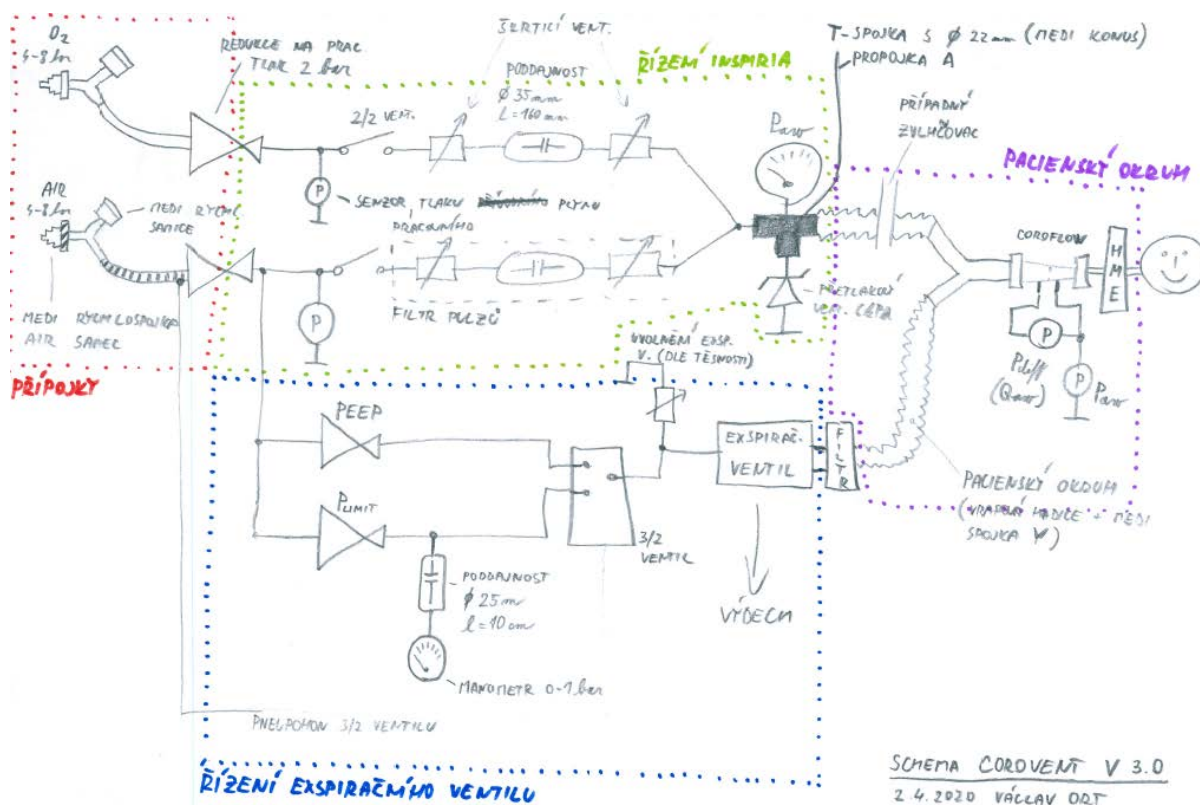 O2
4-8 bar
REDUKCE NA PRAC.
TLAK 2 bar
ŠKRTICÍ VENT.
ŘÍZENÍ INSPIRIA
T-SPOJKA S ϕ 22mm (MEDI KONUS)
PROPOJKA A
PODDAJNOST
ϕ 35mm
l=160mm
2/2 VENT.
Paw
PŘÍPADNÝ
ZVLHČOVAČ
PACIENSKÝ OKRUH
P
SENZOR TLAKU
PLYNU
PRACOVNÍHO
AIR
4-8 bar
MEDI RYCHL.
SAMICE
COROFLOW
HME
FILTR PULZŮ
P
PŘETLAKOVÝ
MEDI RYCHLOSPOJKA
AIR SAMEC
PŘÍPOJKY
UVOLNĚNÍ EXSP.
V. (DLE TĚSNOSTI)
P
Pdiff
(Qaw)
P
Paw
PEEP
EXSPIRAČ.
VENTIL
FILTR
PLIMIT
3/2
VENTIL
PACIENSKÝ OKRUH
(VRAPOVÁ HADICE + MEDI
SPOJKA Y)
PODDAJNOST
ϕ 25mm
l=10cm
VÝDECH
MANOMETR 0-1 bar
PNEUPOHON 3/2 VENTILU
ŘÍZENÍ EXSPIRAČNÍHO VENTILU
SCHEMA COROVENT V 3.0
2.4.2020 VÁCLAV ORT